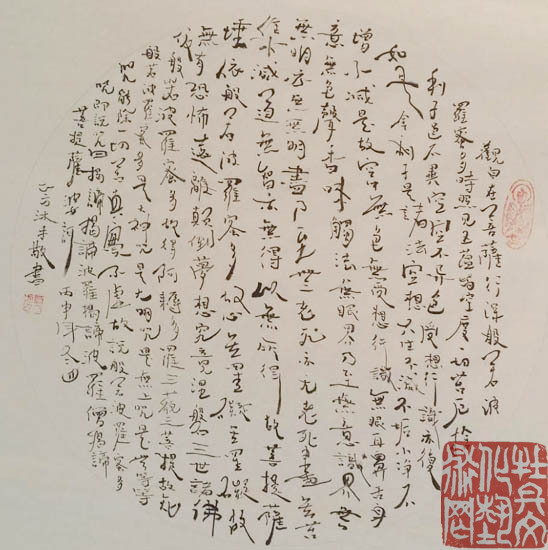 觀自在菩薩行深般若波
羅蜜多時照見五蘊皆空度一切苦厄舍
利子色不異空空不異色受想行識亦復
如是舍利子是諸法空想不生不滅不垢不淨不
增不減是故空中無色無受想行識無眼耳鼻舌身
意無色聲香味觸法無眼界乃至無意識界無
無明亦無無明盡乃至無老死亦無老死盡無苦
集滅道無智亦無得以無所得故菩提薩
埵依般若波羅蜜多故心無罣礙無罣礙故
無有恐怖遠離顛倒夢想究竟涅槃三世諸佛
依般若波羅蜜多故得阿耨多羅三藐三菩提故知
般若波羅蜜多是大神咒是大明咒是無上咒是無等等
咒能除一切苦真實不虛故說般若波羅蜜多
咒即說咒曰揭諦揭諦波羅揭諦波羅僧揭諦
菩提薩婆訶 丙申年冬
沐手敬書
杜兵文
化藝
術网